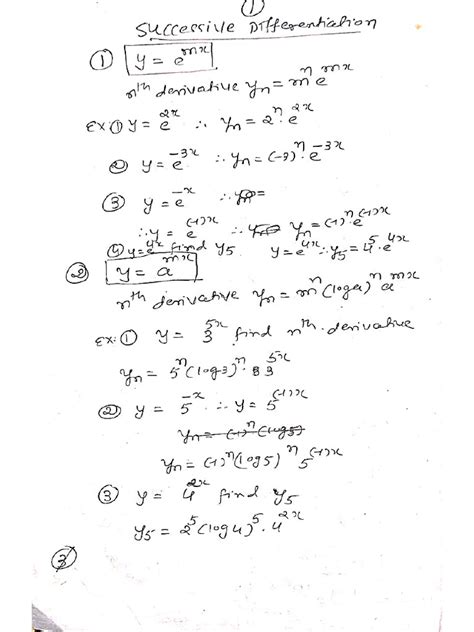 ①
Successive Differentiation
① y = e^{mx}
nth derivative y_n = m^n e^{mx}
Ex: ① y = e^{2x} ∴ y_n = 2^n. e^{2x}
② y = e^{-3x} ∴ y_n = (-3)^n. e^{-3x}
③ y = e^{-x}
∴ y = e^{(-1)x} ∴ y_n = (-1)^n. e^{(-1)x}
④ y = e^{4x} find y_5 y = e^{4x} ∴ y_5 = 4^5. e^{4x}
② y = a^{mx}
nth derivative y_n = m^n (log a)^n a^{mx}
Ex: ① y = 3^{5x} find nth derivative
y_n = 5^n (log 3)^n. 3^{5x}
② y = 5^{-x} ∴ y = 5^{(-1)x}
y_n = (-1)^n (log 5)
y_n = (-1)^n (log 5)^n 5^{(-1)x}
③ y = 4^{2x} find y_5
y_5 = 2^5 (log 4)^5. 4^{2x}
③